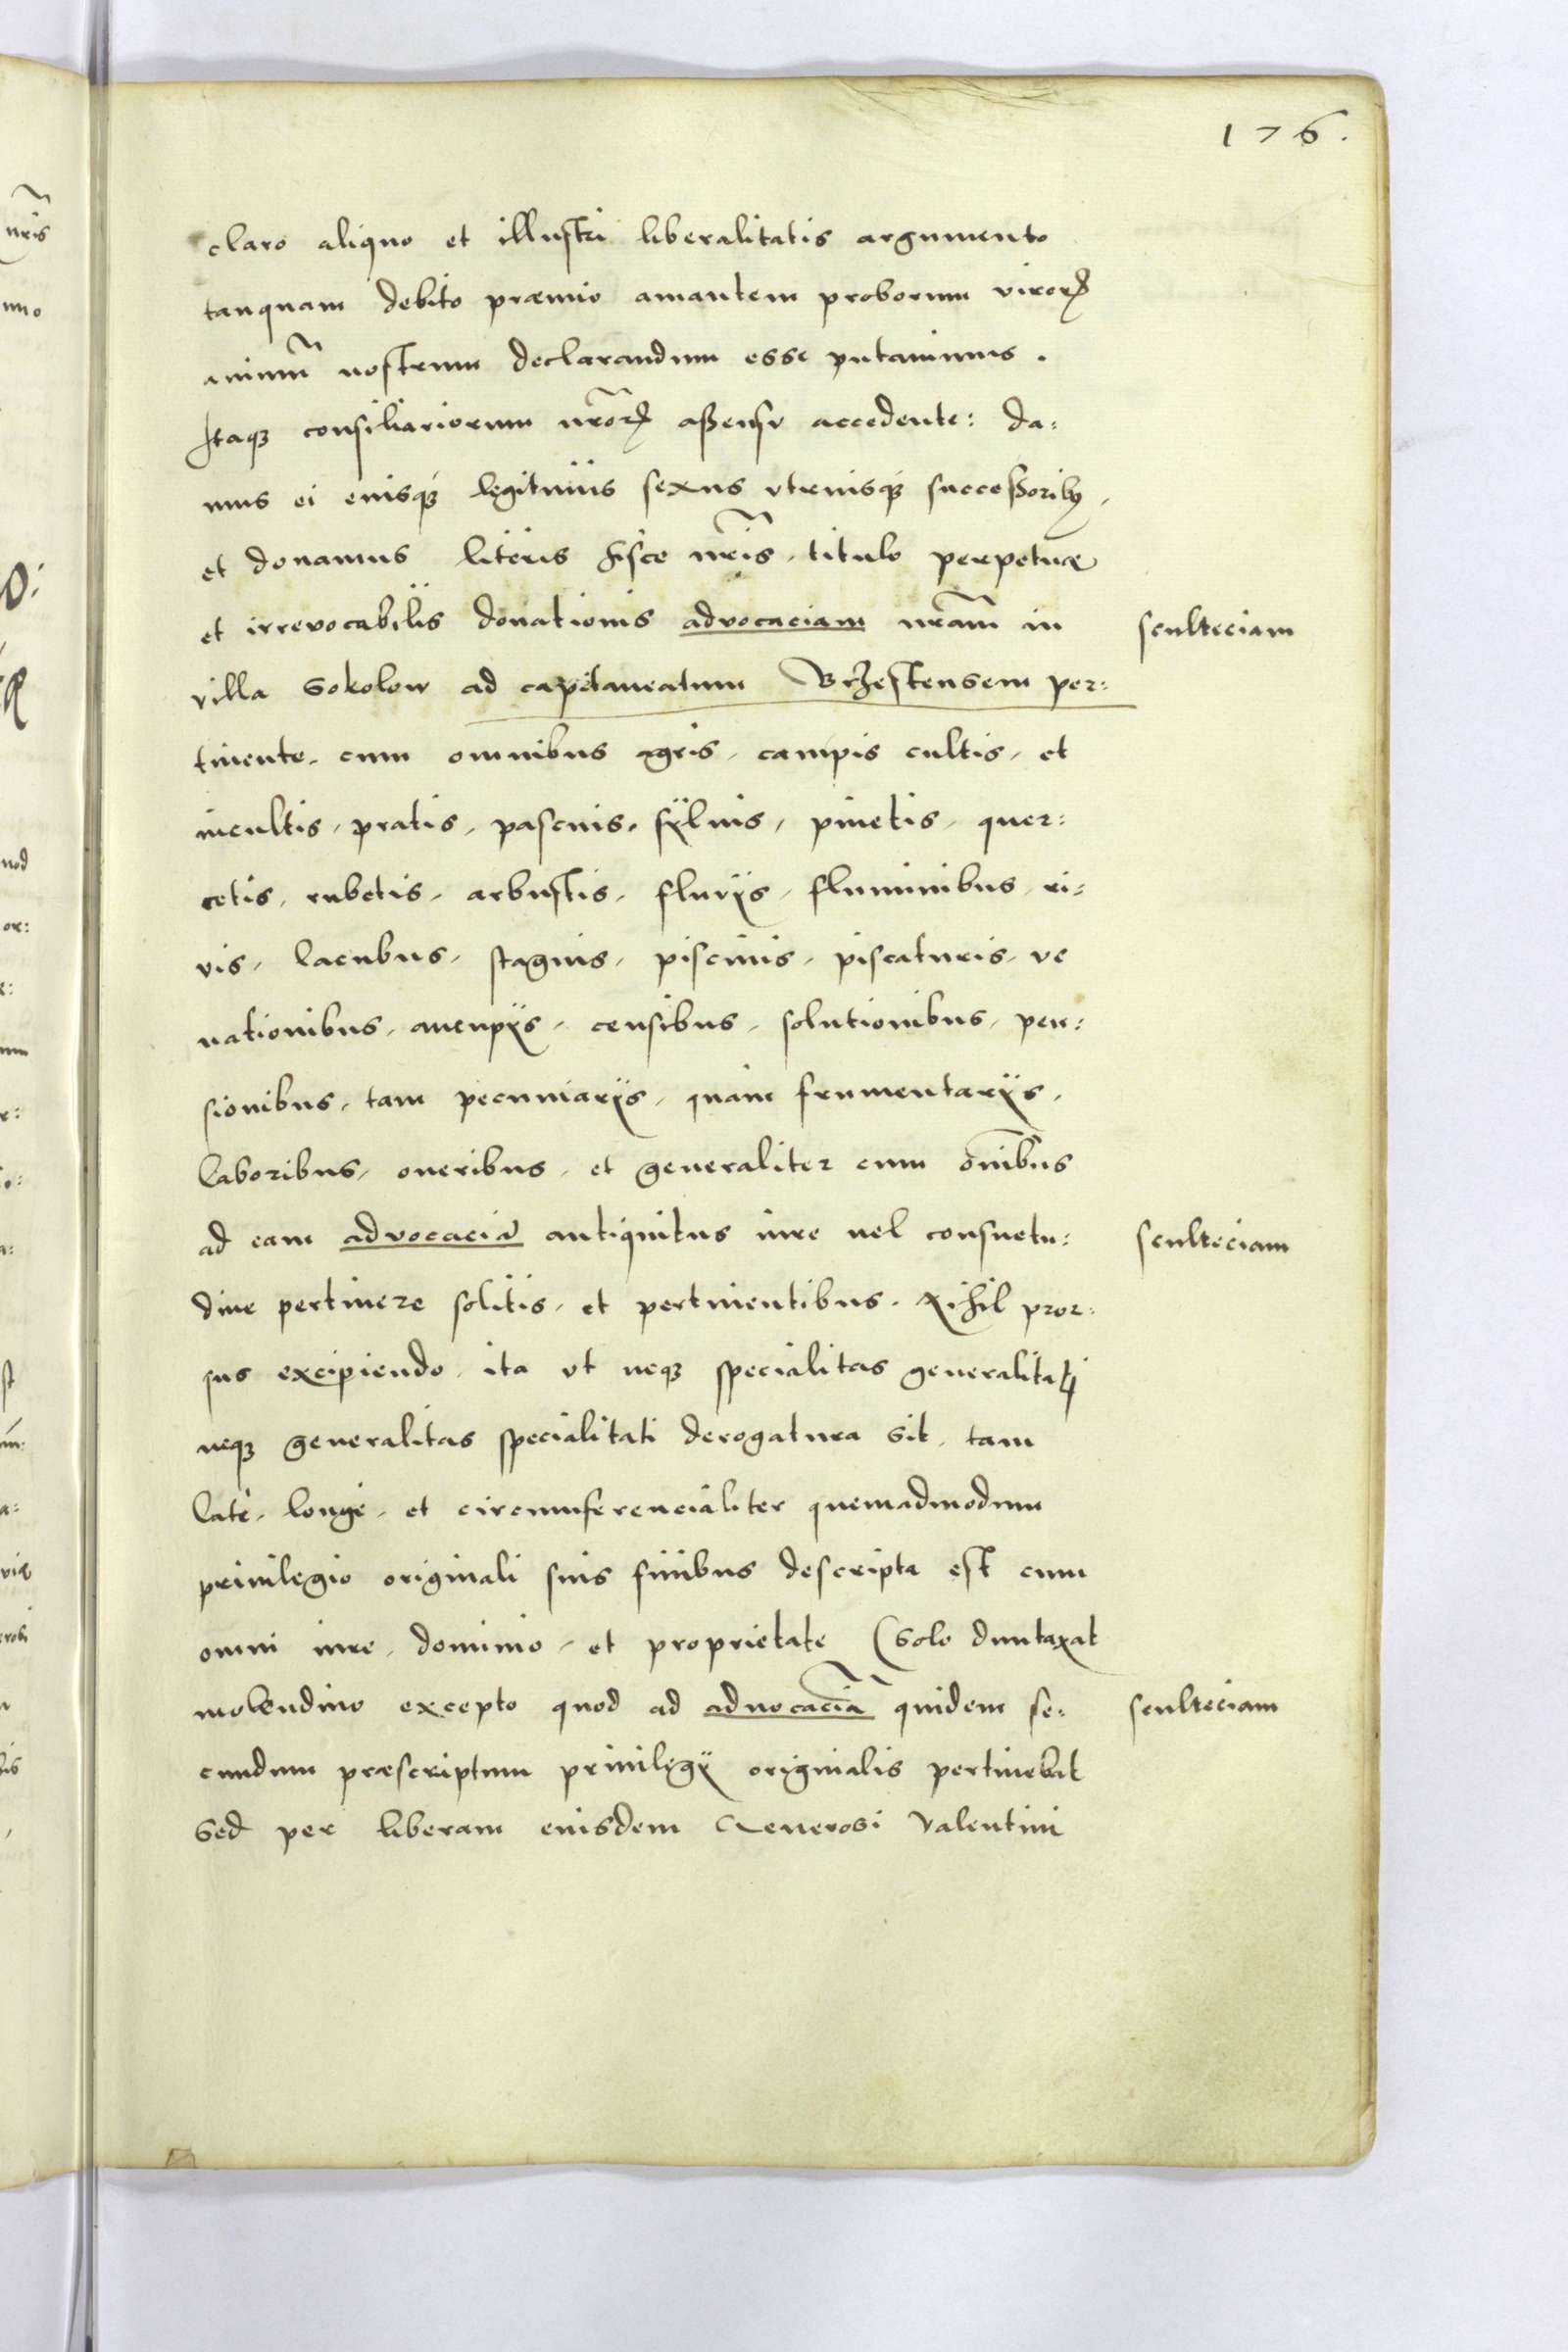 176.
claro aliquo et illustri liberalitatis argumento
tanquam debito præmio amantem proborum viror̃
animũ nostrum declarandum esse putauimus.
Itaqꝫ consiliariorum nr̃or̃ aßensu accedente: da:
mus ei eiusqꝫ legitimis sexus vtriusqꝫ succeßoribꝰ,
et donamus literis hisce nr̃is, titulo perpetuæ
et irrevocabilis donationis advocaciam nr̃am in
sculteciam
villa Sokolow ad capitaneatum Brzestensem per:
tinente, cum omnibus agris, campis cultis, et
incultis, pratis, pascuis, sÿluis, pinetis, quer:
cetis, rubetis, arbustis, fluvÿs, fluminibus, ri:
vis, lacubus, stagnis, piscinis, piscaturis, ve
nationibus, aucupÿs, censibus, solutionibus, pen:
sionibus, tam pecuniarÿs, quàm frumentarÿs,
laboribus, oneribus, et generaliter cum om̃ibus
ad eam advocaciã antiquitus iure uel consuetu:
sculteciam
dine pertinere solitis, et pertinentibus. Nihil pror:
sus excipiendo, ita vt neqꝫ specialitas generalitati
neqꝫ generalitas specialitati derogatura sit, tam
latè, longè, et circumferencialiter quemadmodum
priuilegio originali suis finibus descripta est cum
omni iure, dominio, et proprietate (solo duntaxat
molendino excepto quod ad aduocaciã quidem se:
sculteciam
cundum præscriptum priuilegÿ originalis pertinebat
sed per liberam eiusdem Generosi Valentini